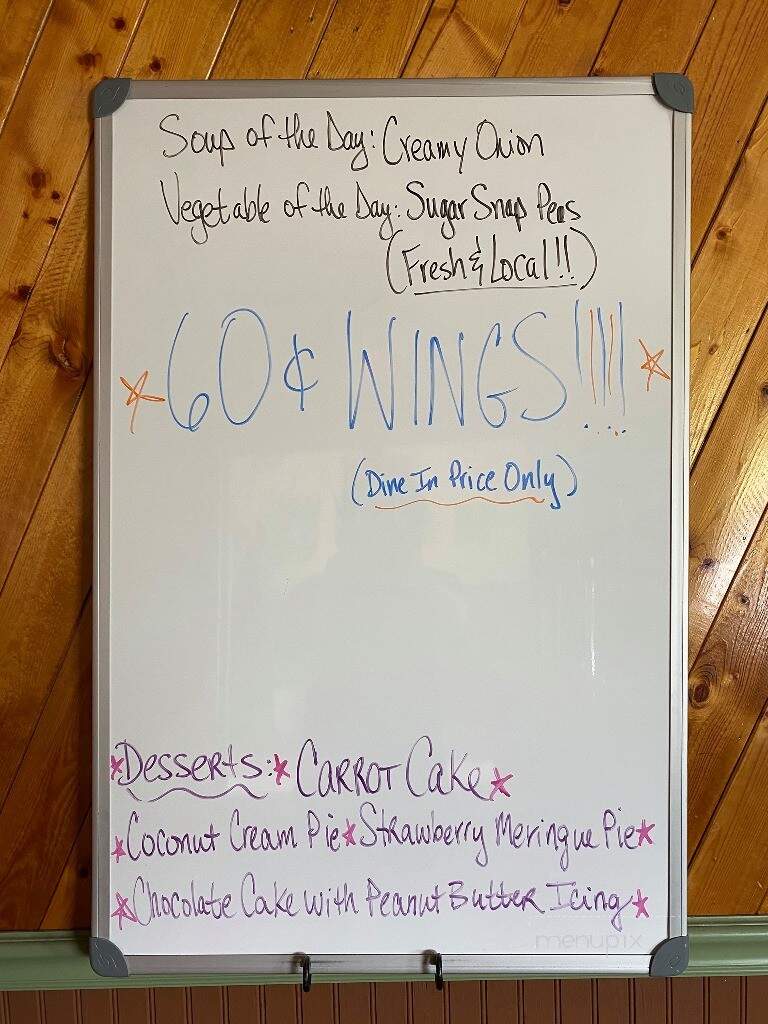 Soup of the Day: Creamy Onion
Vegetable of the Day: Sugar Snap Peas
(Fresh & Local!!)
60¢ WINGS!!!!
(Dine In Price Only)
Desserts: Carrot Cake
Coconut Cream Pie Strawberry Meringue Pie
Chocolate Cake with Peanut Butter Icing
menupix